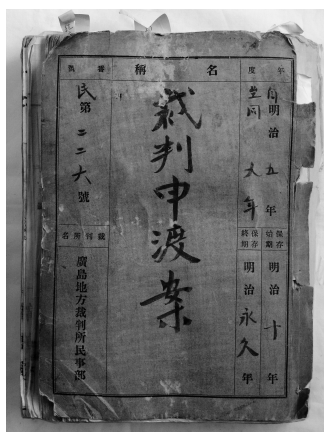 年度
自明治五年
至同九年
保存始期
明治十年
保存終期
明治永久年
名稱
裁判申渡案
番號
民第二二六號
裁判所名
廣島地方裁判所民事部